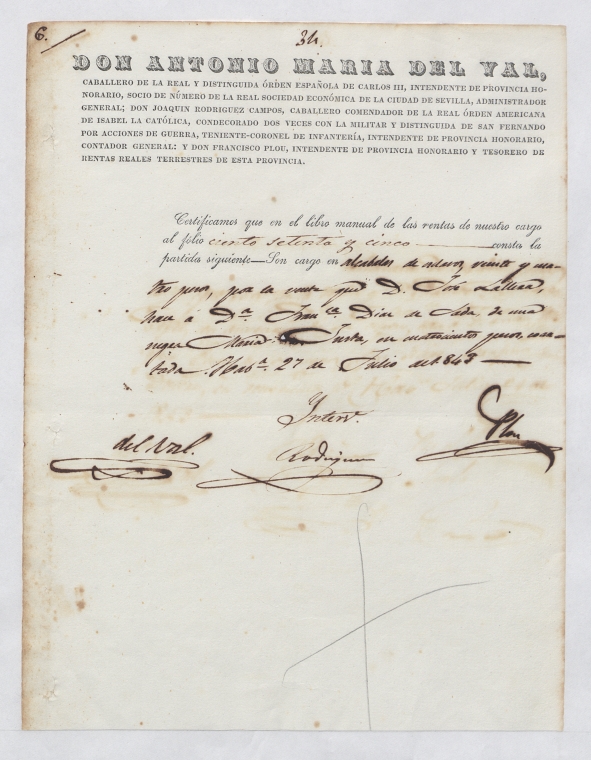 6.
34.
DON ANTONIO MARIA DEL VAL,
CABALLERO DE LA REAL Y DISTINGUIDA ÓRDEN ESPAÑOLA DE CARLOS III, INTENDENTE DE PROVINCIA HO-
NORARIO, SOCIO DE NÚMERO DE LA REAL SOCIEDAD ECONÓMICA DE LA CIUDAD DE SEVILLA, ADMINISTRADOR
GENERAL; DON JOAQUIN RODRIGUEZ CAMPOS, CABALLERO COMENDADOR DE LA REAL ÓRDEN AMERICANA
DE ISABEL LA CATÓLICA, CONDECORADO DOS VECES CON LA MILITAR Y DISTINGUIDA DE SAN FERNANDO
POR ACCIONES DE GUERRA, TENIENTE-CORONEL DE INFANTERÍA, INTENDENTE DE PROVINCIA HONORARIO,
CONTADOR GENERAL: Y DON FRANCISCO PLOU, INTENDENTE DE PROVINCIA HONORARIO Y TESORERO DE
RENTAS REALES TERRESTRES DE ESTA PROVINCIA.
Certificamos que en el libro manual de las rentas de nuestro cargo
al folio ciento setenta y cinco consta la
partida siguiente—Son cargo en alcabalas de veinte y cua-
tro pesos, por la venta que D. José
hace á D.ª Fran.ca Diaz de de una
negra María Justa, en cuatrocientos pesos,
Hab.ª 27 de Julio de 1843—
Interv.
del Val.
Rodriguez
Plou